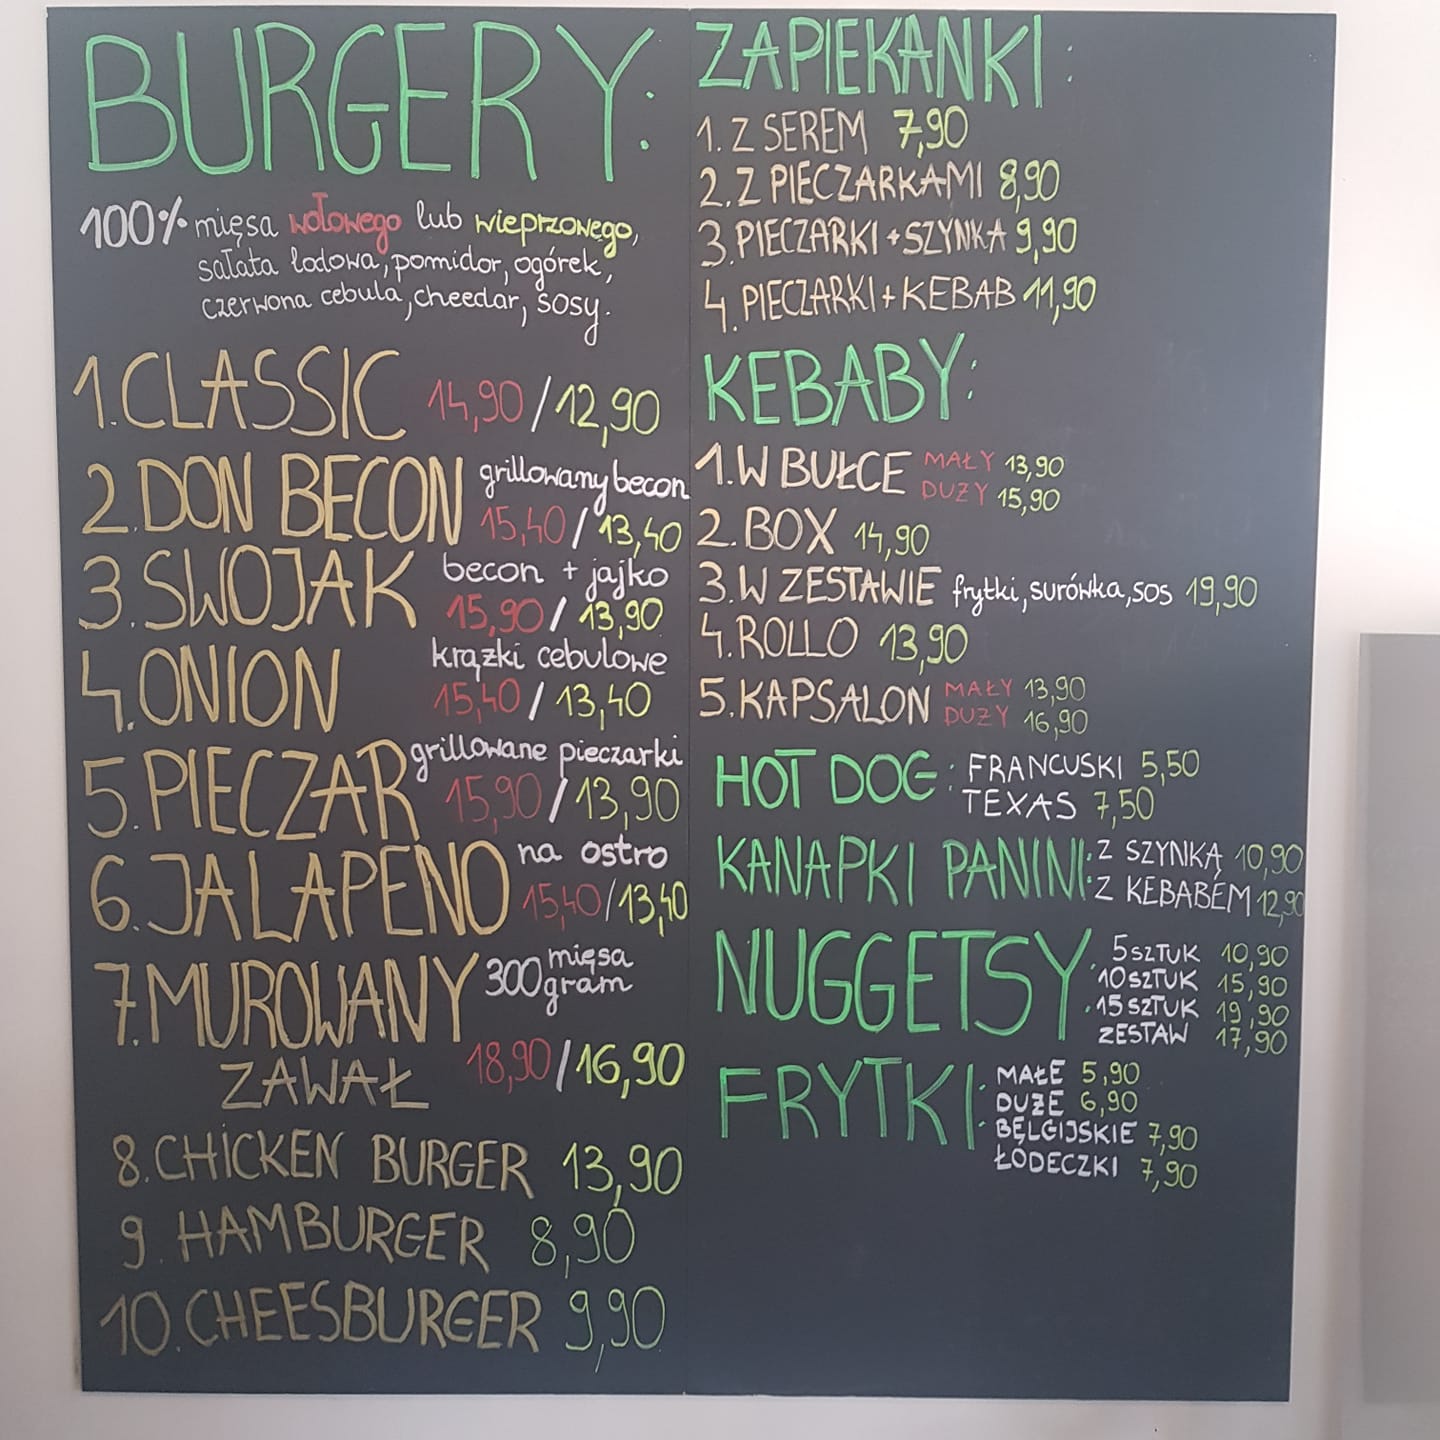 BURGERY:
100% mięsa wołowego lub wieprzowego,
sałata lodowa, pomidor, ogórek,
czerwona cebula, cheedar, sosy.
1. CLASSIC 14,90/12,90
2. DON BECON grillowany becon
15,40/13,40
3. SWOJAK becon + jajko
15,90/13,90
4. ONION krążki cebulowe
15,40/13,40
5. PIECZAR grillowane pieczarki
15,90/13,90
6. JALAPENO na ostro
15,40/13,40
7. MUROWANY 300 mięsa
gram
ZAWAŁ 18,90/16,90
8. CHICKEN BURGER 13,90
9. HAMBURGER 8,90
10. CHEESBURGER 9,90
ZAPIEKANKI:
1. Z SEREM 7,90
2. Z PIECZARKAMI 8,90
3. PIECZARKI + SZYNKA 9,90
4. PIECZARKI + KEBAB 11,90
KEBABY:
1. W BUŁCE MAŁY 13,90
DUŻY 15,90
2. BOX 14,90
3. W ZESTAWIE frytki, surówka, sos 19,90
4. ROLLO 13,90
5. KAPSALON MAŁY 13,90
DUŻY 16,90
HOT DOG: FRANCUSKI 5,50
TEXAS 7,50
KANAPKI PANINI: Z SZYNKĄ 10,90
Z KEBABEM 12,90
NUGGETSY: 5 SZTUK 10,90
10 SZTUK 15,90
15 SZTUK 19,90
ZESTAW 17,90
FRYTKI: MAŁE 5,90
DUŻE 6,90
BELGIJSKIE 7,90
ŁÓDECZKI 7,90